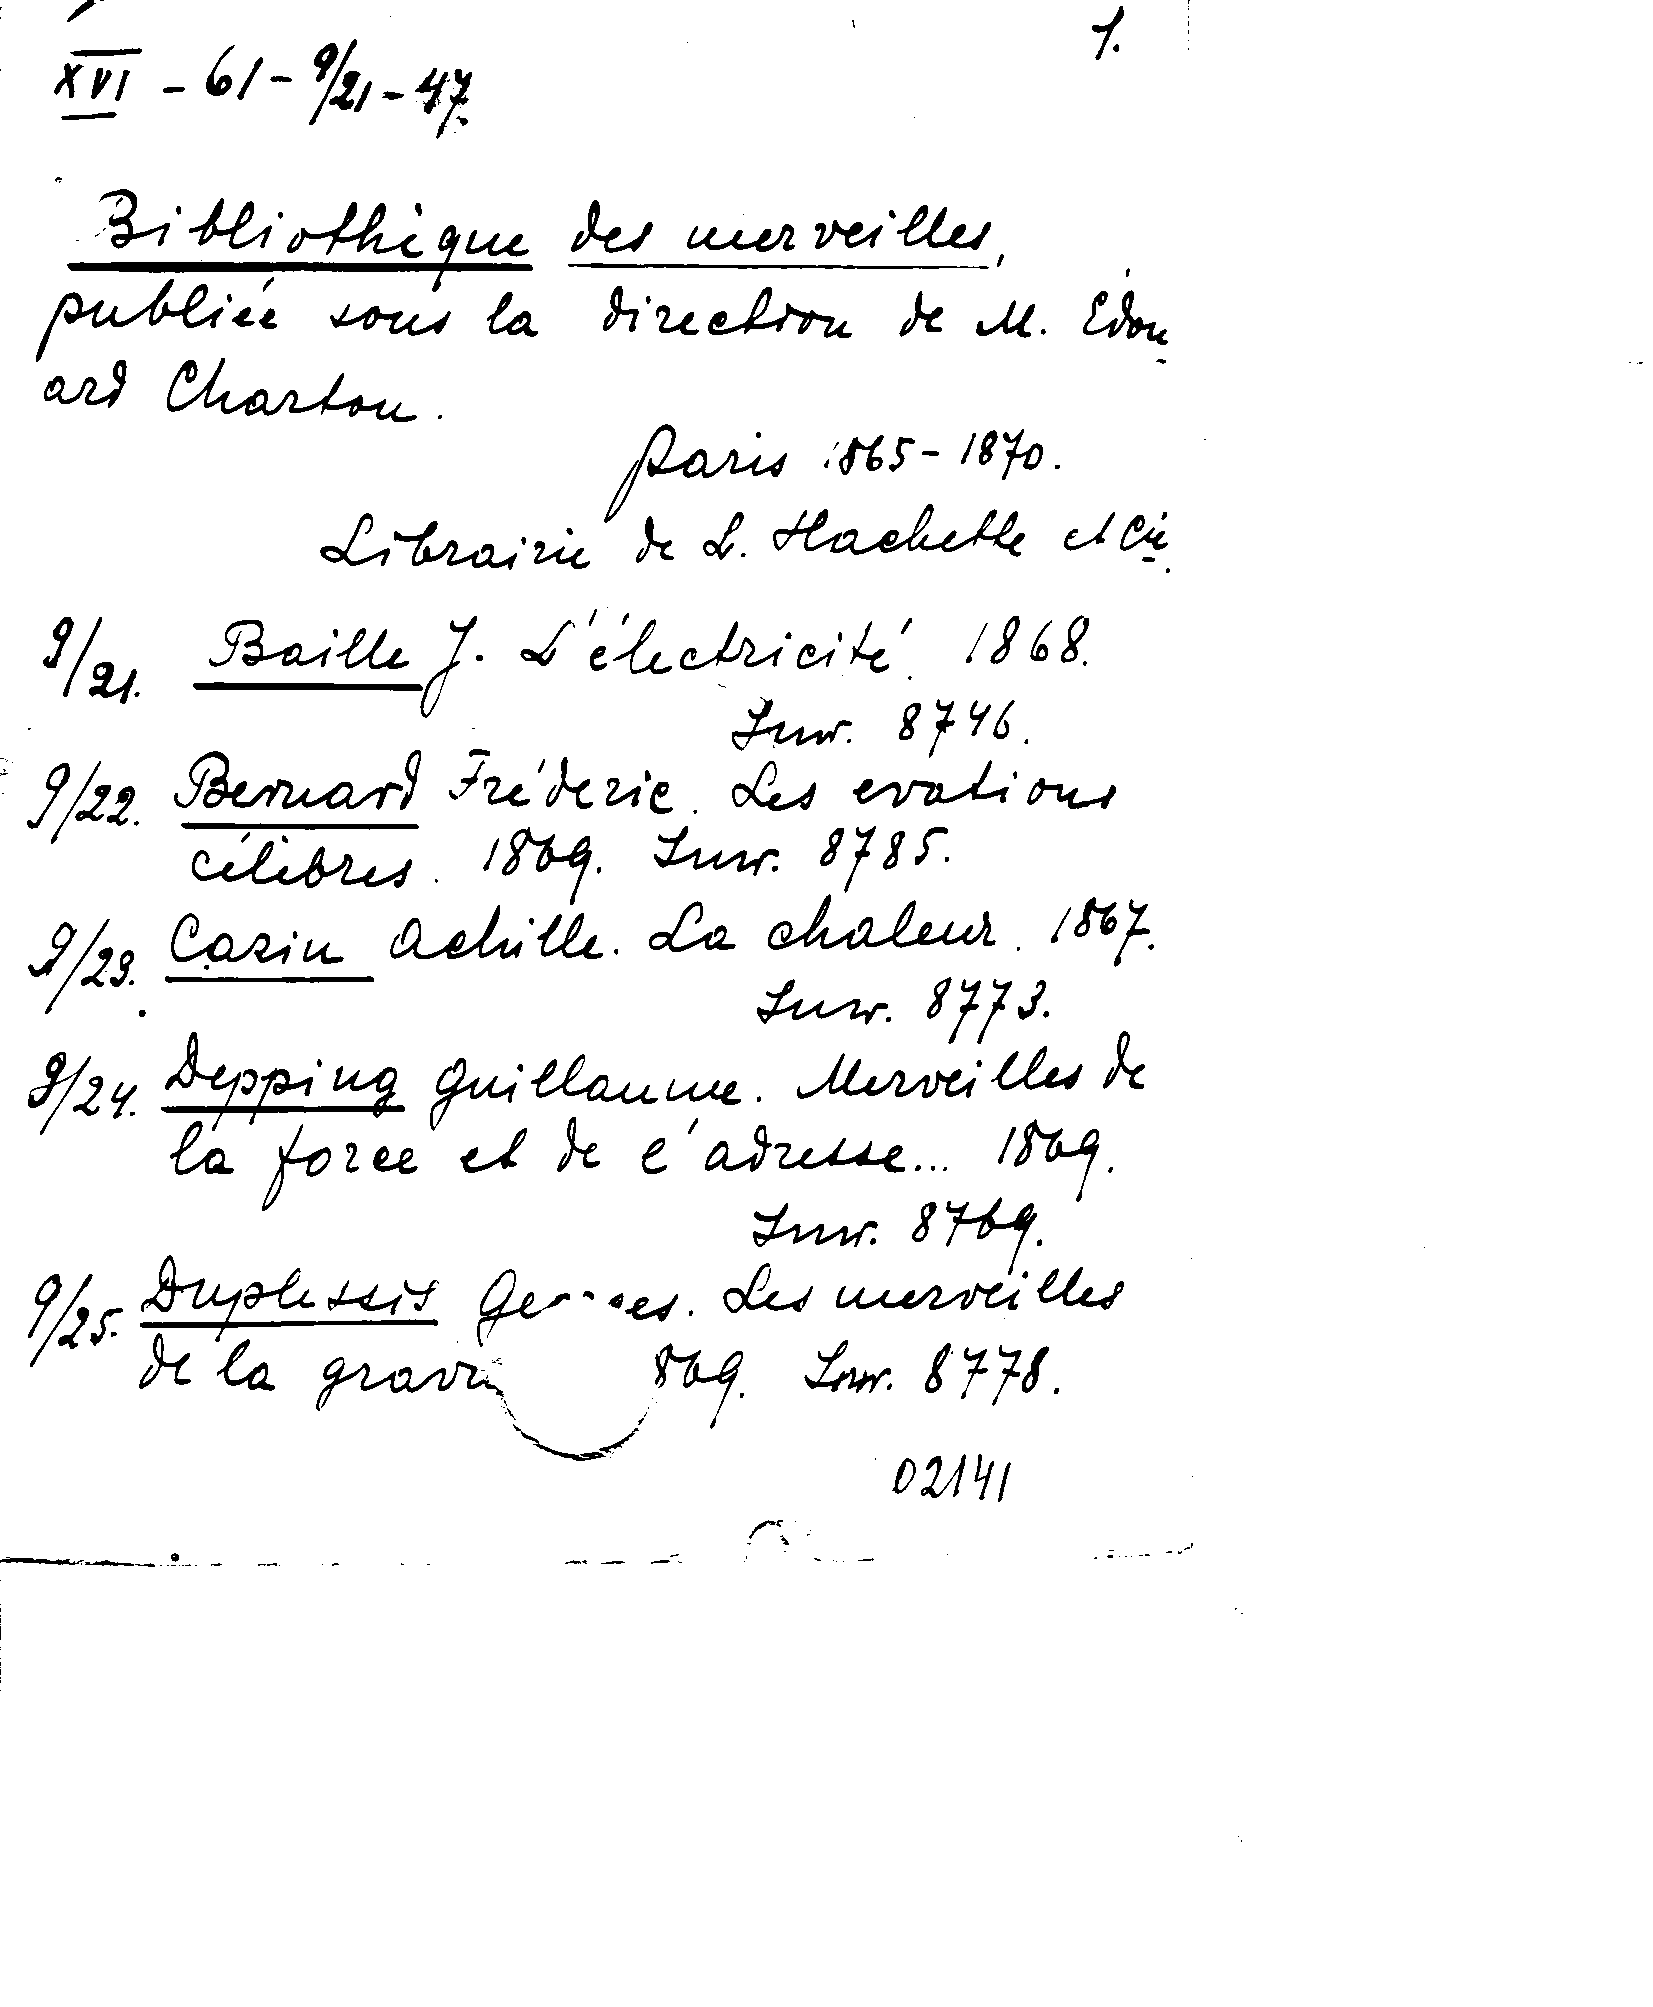 1.
XVI - 61 - 9/21 - 47.
Bibliothèque des merveilles,
publiée sous la direction de M. Édou
ard Charton.
Paris 1865-1870.
Librairie de L. Hachette et Cie.
9/21. Baille J. L'électricité. 1868.
Inw. 8746.
9/22. Bernard Fréderic. Les evations
célèbres. 1869. Inw. 8785.
9/23. Cazin Achille. La chaleur. 1867.
Inw. 8773.
9/24. Depping Guillaume. Merveilles de
la force et de l'adresse... 1869.
Inw. 8769.
9/25. Duplessis Ge es. Les merveilles
de la gravu 869. Inw. 8778.
02141